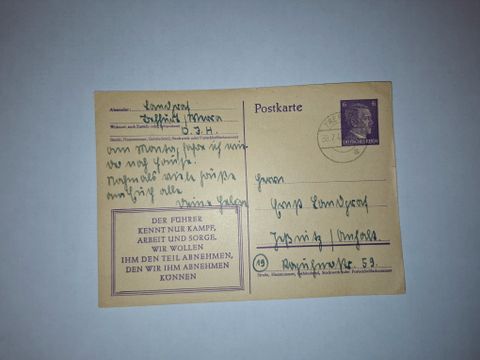 Absender: Landgraf
Wohnort, auch Zustell- oder Leitpostamt
D. J. H.
Straße, Hausnummer, Gebäudeteil, Stockwerk oder Postschließfachnummer
am Montag fahre ich wie-
der nach Hause!
Nochmals viele Grüße
an Euch alle
Deine
DER FÜHRER
KENNT NUR KAMPF,
ARBEIT UND SORGE.
WIR WOLLEN
IHM DEN TEIL ABNEHMEN,
DEN WIR IHM ABNEHMEN
KÖNNEN
Postkarte
6 6
DEUTSCHES REICH
a
Herrn
Ernst Landgraf
Jeßnitz / Anhalt
19
59.
Straße, Hausnummer, Gebäudeteil, Stockwerk oder Postschließfachnummer